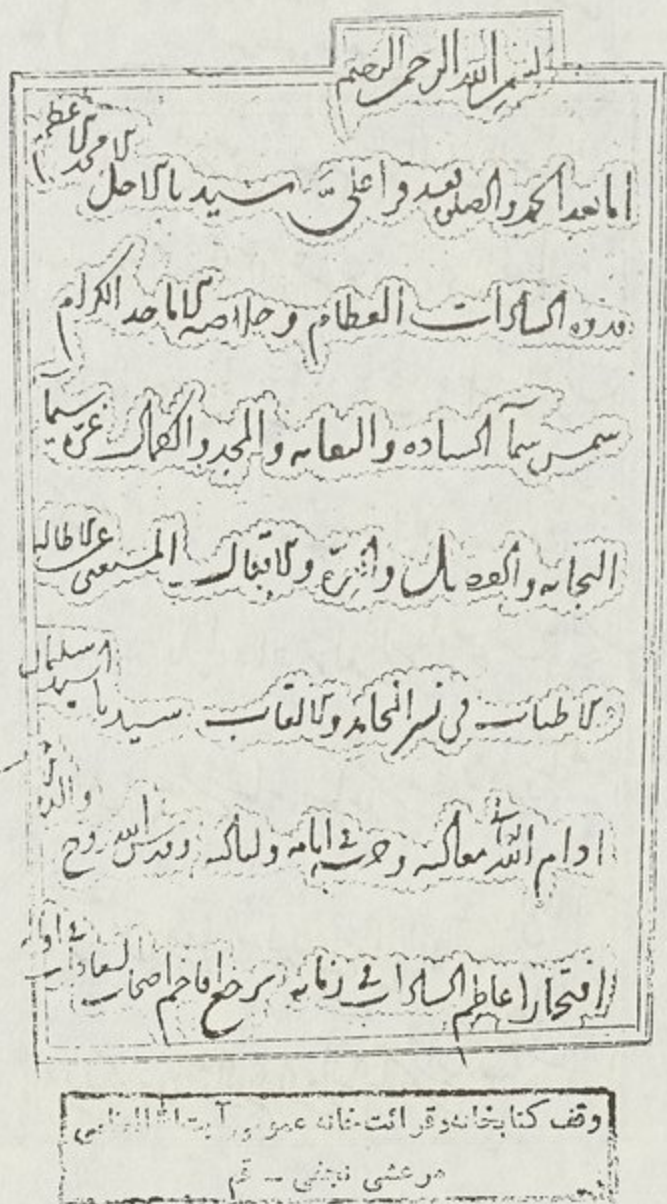 بسم الله الرحمن الرحیم
اما بعد الحمد والصلی بعد فراعلی سیدنا الاجل الامجد الاعظم
قدوه السادات العظام و خلاصه الاماجد الکرام
شمس سمآ السیاده والنقابه والمجد والکمال غره سیما
النجابه والفضل والعزه والاقبال المستغنی عن الاطاله
الاطناب فی نشر المحامد والالقاب سیدنا السید سلیمان
ادام الله معالیه وحرث فی ایامه ولیالیه وقدس الله روح والده
افتخار اعاظم السادات فی زمانه مرجع افاخم اصحاب السعادات فی اوانه
وقف کتابخانه و قرائت خانه عمومی آیت الله العظمی
مرعشی نجفی - قم